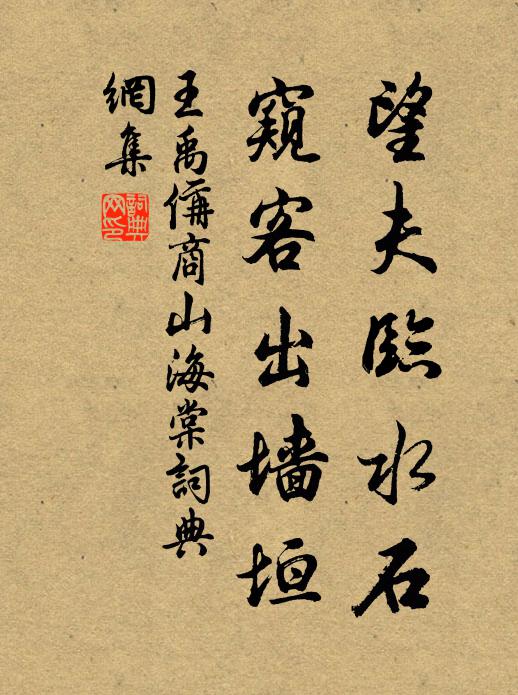 望夫臨水石
窺客出墻垣
王禹偁商山海棠詞典
網集
詞典
网印